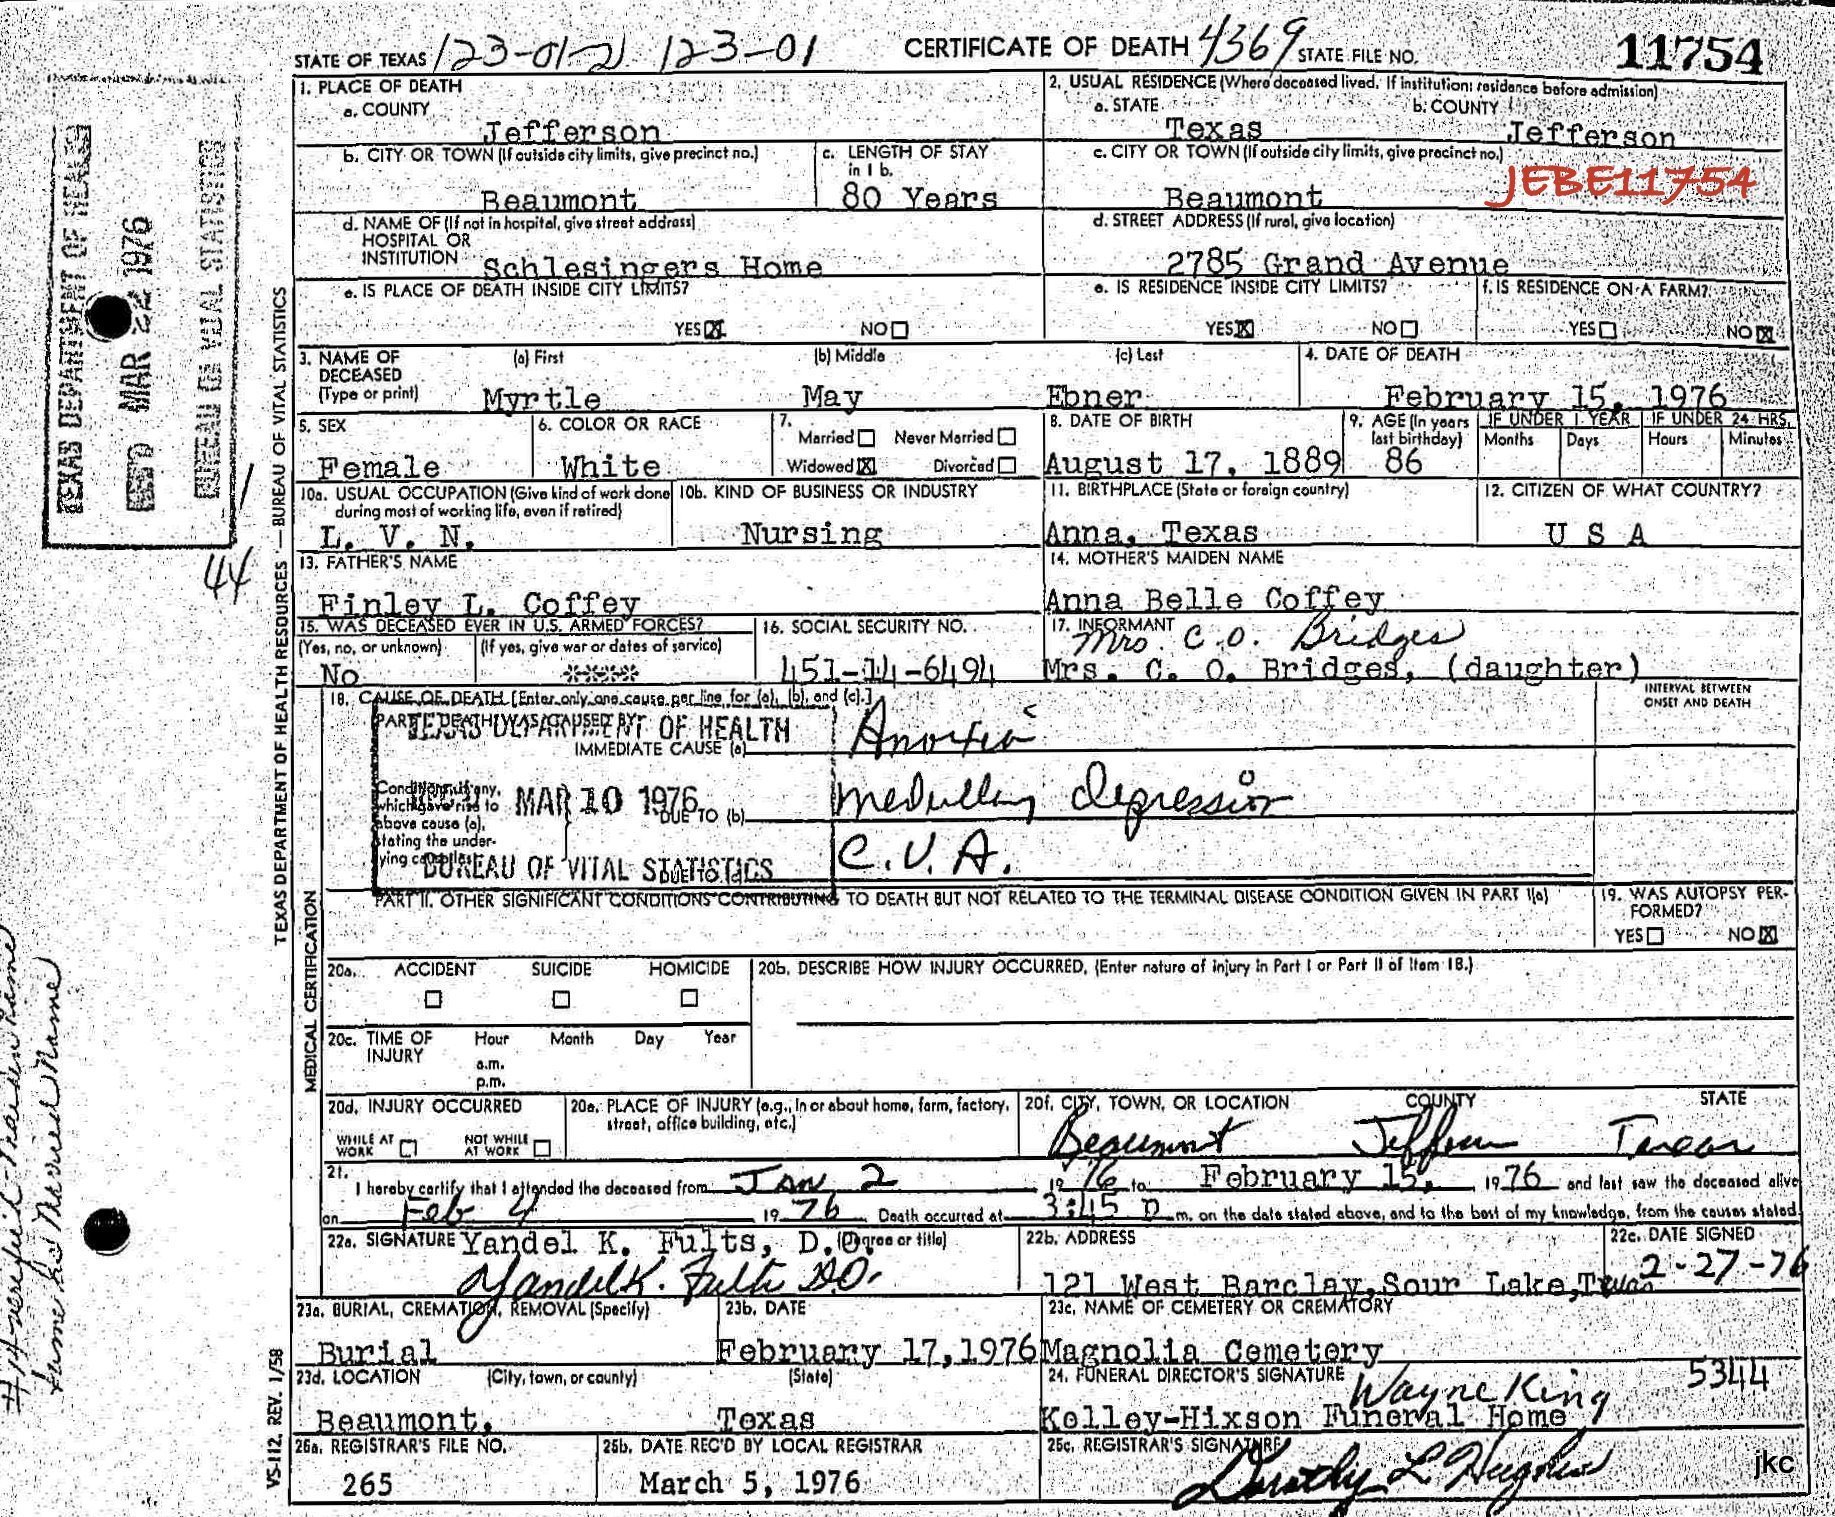 STATE OF TEXAS 123-01-2) 123-01 CERTIFICATE OF DEATH 4369 STATE FILE NO. 11754
1. PLACE OF DEATH
a. COUNTY
Jefferson
2. USUAL RESIDENCE (Where deceased lived. If institution: residence before admission)
a. STATE b. COUNTY
Texas Jefferson
b. CITY OR TOWN (If outside city limits, give precinct no.)
Beaumont
c. LENGTH OF STAY
in 1 b.
80 Years
c. CITY OR TOWN (If outside city limits, give precinct no.)
Beaumont
JEBE11754
d. NAME OF (If not in hospital, give street address)
HOSPITAL OR
INSTITUTION Schlesingers Home
d. STREET ADDRESS (If rural, give location)
2785 Grand Avenue
e. IS PLACE OF DEATH INSIDE CITY LIMITS?
YES X NO
e. IS RESIDENCE INSIDE CITY LIMITS?
YES X NO
f. IS RESIDENCE ON A FARM?
YES NO X
3. NAME OF
DECEASED
(Type or print)
(a) First (b) Middle (c) Last
Myrtle May Ebner
4. DATE OF DEATH
February 15, 1976
5. SEX
Female
6. COLOR OR RACE
White
7.
Married Never Married
Widowed X Divorced
8. DATE OF BIRTH
August 17, 1889
9. AGE (In years
last birthday)
86
IF UNDER 1 YEAR IF UNDER 24 HRS.
Months Days Hours Minutes
10a. USUAL OCCUPATION (Give kind of work done
during most of working life, even if retired)
L. V. N.
10b. KIND OF BUSINESS OR INDUSTRY
Nursing
11. BIRTHPLACE (State or foreign country)
Anna, Texas
12. CITIZEN OF WHAT COUNTRY?
U S A
13. FATHER'S NAME
Finley L. Coffey
14. MOTHER'S MAIDEN NAME
Anna Belle Coffey
15. WAS DECEASED EVER IN U.S. ARMED FORCES?
(Yes, no, or unknown) (If yes, give war or dates of service)
No ****
16. SOCIAL SECURITY NO.
451-14-6494
17. INFORMANT
Mrs. C. O. Bridges
Mrs. C. O. Bridges, (daughter)
18. CAUSE OF DEATH [Enter only one cause per line for (a), (b), and (c).]
INTERVAL BETWEEN
ONSET AND DEATH
PART I. DEATH WAS CAUSED BY:
TEXAS DEPARTMENT OF HEALTH
IMMEDIATE CAUSE (a) Anoxia
Conditions, if any,
which gave rise to
above cause (a),
stating the under-
lying cause last.
MAR 10 1976
DUE TO (b) medullary depression
DUE TO (c) C.V.A.
BUREAU OF VITAL STATISTICS
PART II. OTHER SIGNIFICANT CONDITIONS CONTRIBUTING TO DEATH BUT NOT RELATED TO THE TERMINAL DISEASE CONDITION GIVEN IN PART I(a)
19. WAS AUTOPSY PER-
FORMED?
YES NO X
20a. ACCIDENT SUICIDE HOMICIDE
20b. DESCRIBE HOW INJURY OCCURRED. (Enter nature of injury in Part I or Part II of Item 18.)
20c. TIME OF
INJURY
Hour Month Day Year
a.m.
p.m.
20d. INJURY OCCURRED
WHILE AT
WORK
NOT WHILE
AT WORK
20e. PLACE OF INJURY (e.g., in or about home, farm, factory,
street, office building, etc.)
20f. CITY, TOWN, OR LOCATION COUNTY STATE
Beaumont Jefferson Texas
21. I hereby certify that I attended the deceased from Jan 2 1976 to February 15, 1976 and last saw the deceased alive
on Feb 4 1976 Death occurred at 3:45 P m. on the date stated above, and to the best of my knowledge, from the causes stated.
22a. SIGNATURE Yandel K. Fults, D.O. (Degree or title)
Yandel K. Fults D.O.
22b. ADDRESS
121 West Barclay, Sour Lake, Texas
22c. DATE SIGNED
2-27-76
23a. BURIAL, CREMATION, REMOVAL (Specify)
Burial
23b. DATE
February 17, 1976
23c. NAME OF CEMETERY OR CREMATORY
Magnolia Cemetery
23d. LOCATION (City, town, or county) (State)
Beaumont, Texas
24. FUNERAL DIRECTOR'S SIGNATURE Wayne King 5344
Kelley-Hixson Funeral Home
25a. REGISTRAR'S FILE NO.
265
25b. DATE REC'D BY LOCAL REGISTRAR
March 5, 1976
25c. REGISTRAR'S SIGNATURE
Dorothy L Hughes
jkc
TEXAS DEPARTMENT OF HEALTH
REC'D MAR 22 1976
BUREAU OF VITAL STATISTICS
44
TEXAS DEPARTMENT OF HEALTH RESOURCES — BUREAU OF VITAL STATISTICS
MEDICAL CERTIFICATION
VS-112, REV. 1/58
#14 verified Maiden name
same as Married Name